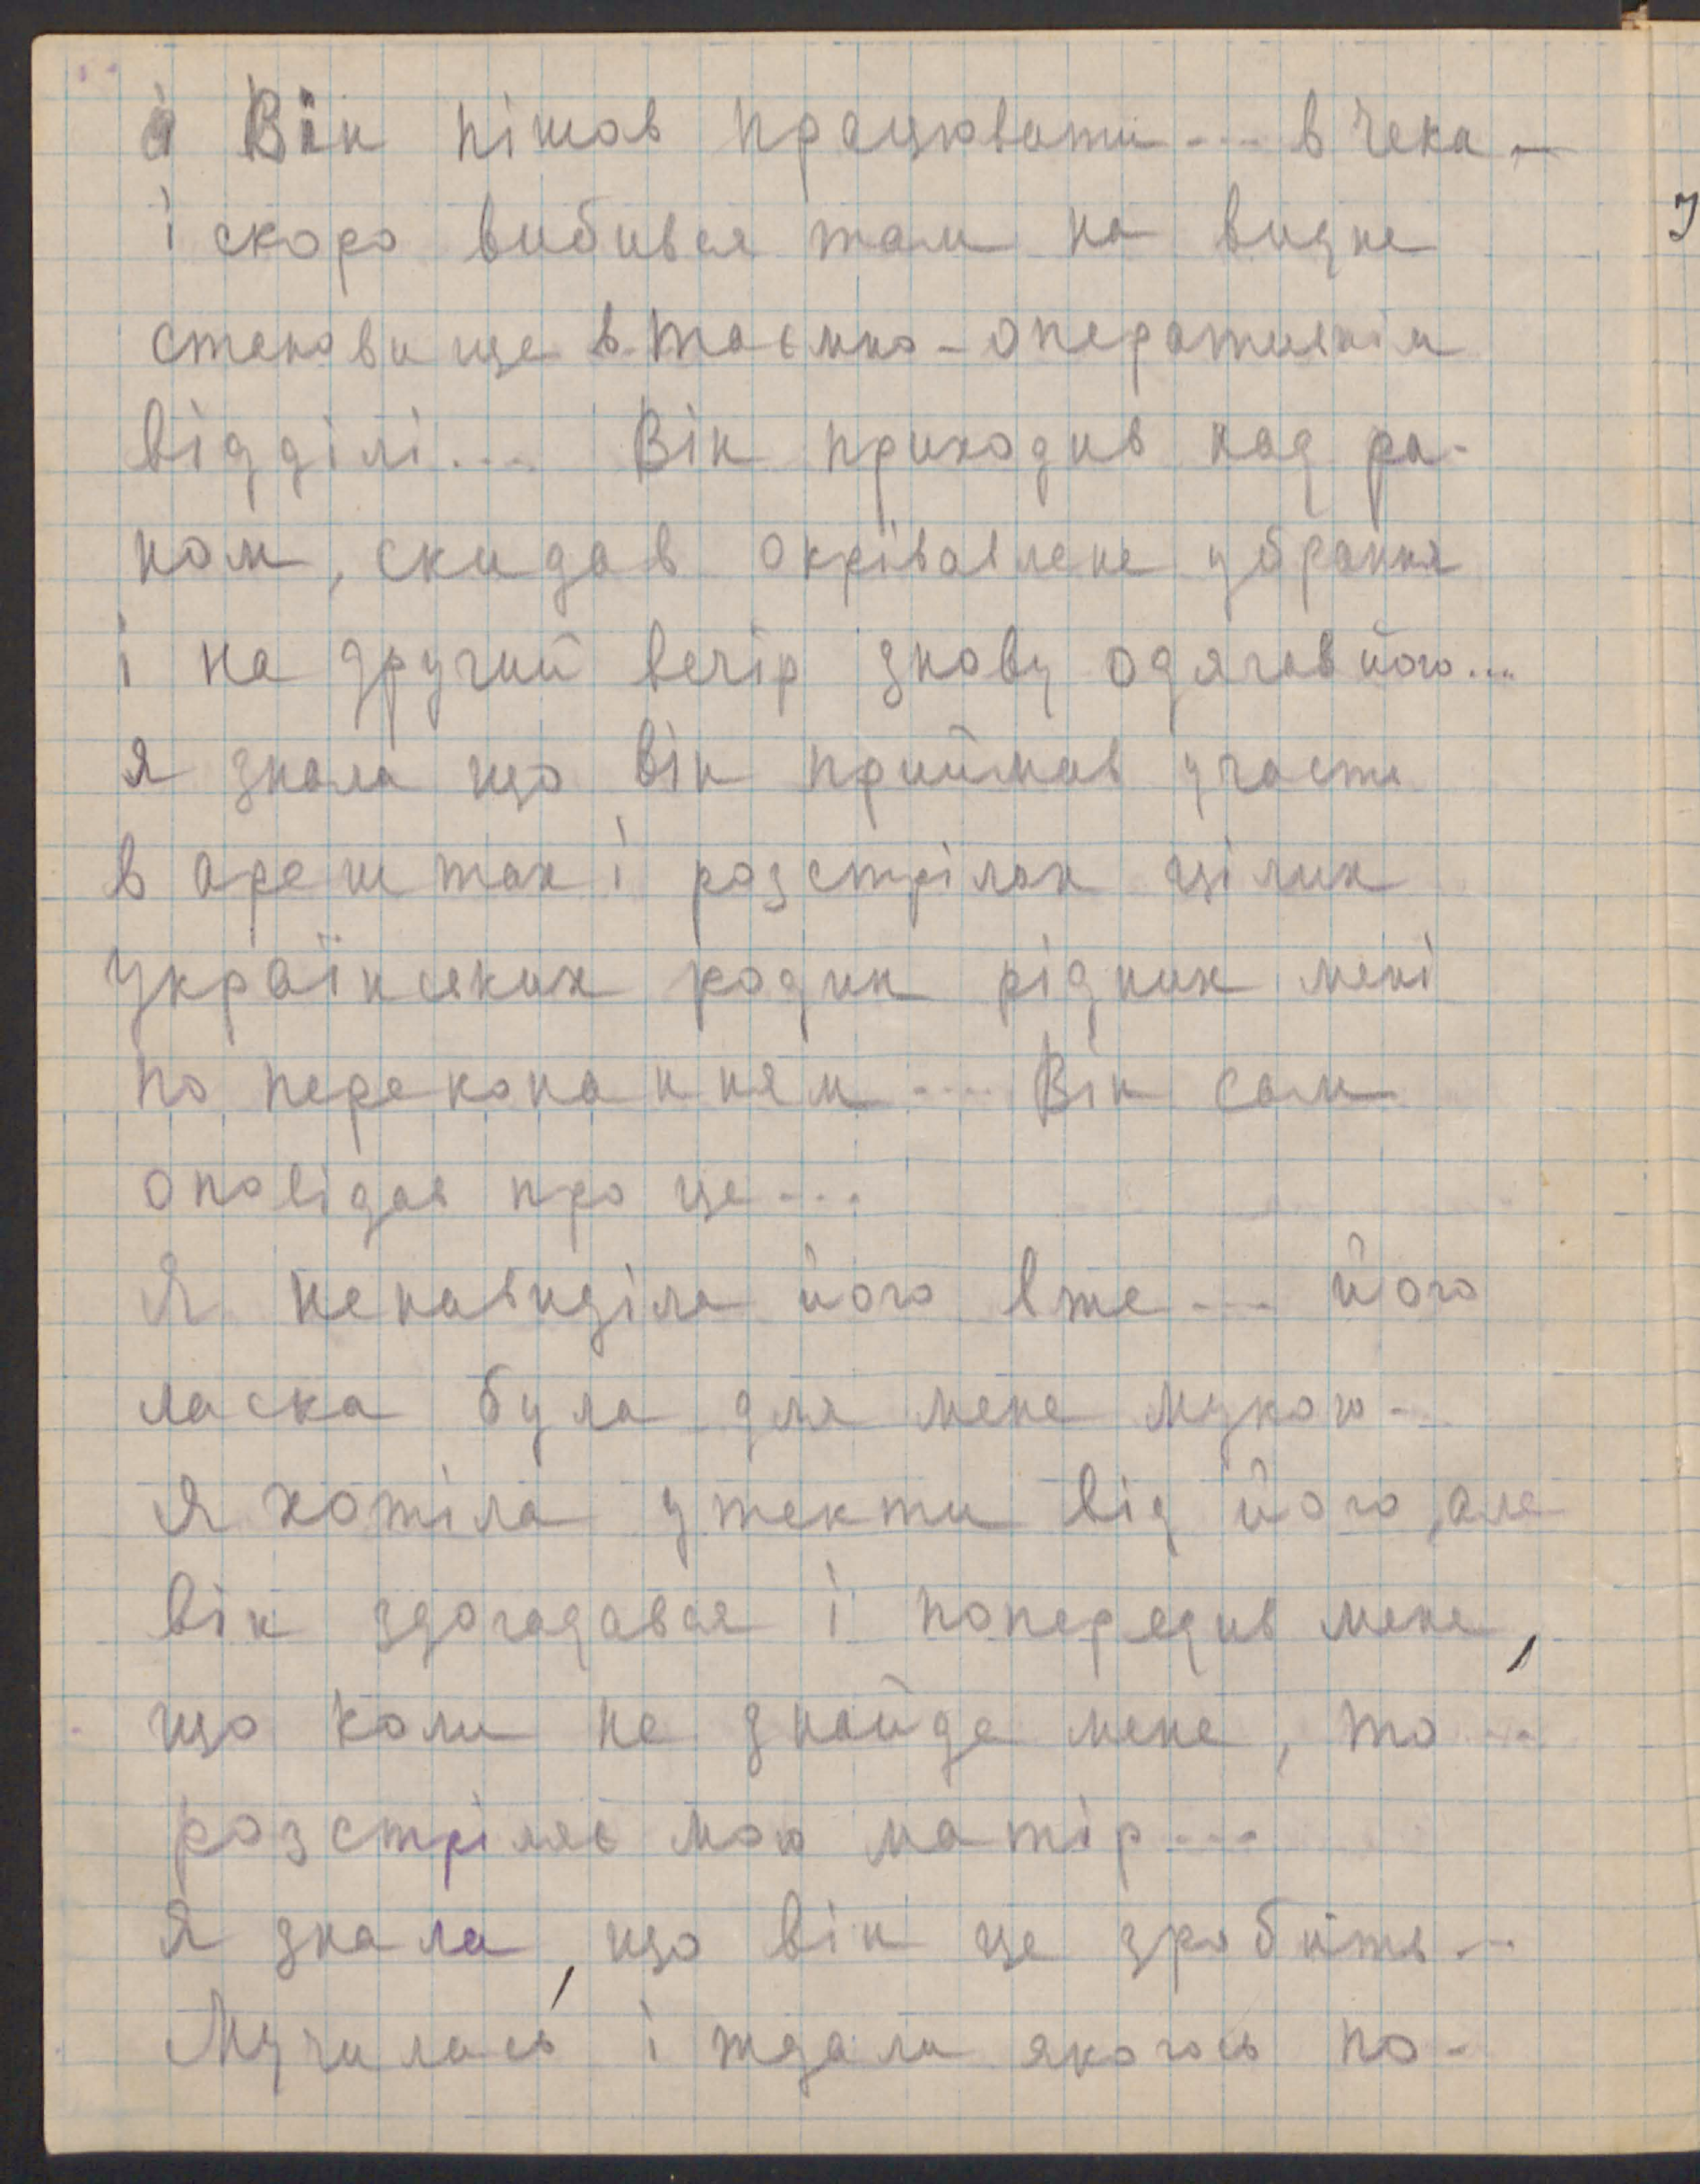 Він пішов працювати... в Чека —
і скоро вибився там на видне
становище в таємно-оперативнім
відділі... Він приходив над ра-
ном, скидав окрівавлене убрання
і на другий вечір знову одягав його...
Я знала що він приймав участь
в арештах і розстрілах цілих
українських родин рідних мені
по переконанням.... Він сам
оповідав про це...
Я ненавиділа його вже... його
ласка була для мене мукою...
Я хотіла утекти від його, але
він здогадався і попередив мене,
що коли не знайде мене, то...
розстріляє мою матір...
Я знала, що він це зробить...
Мучилась і ждала якогось по-